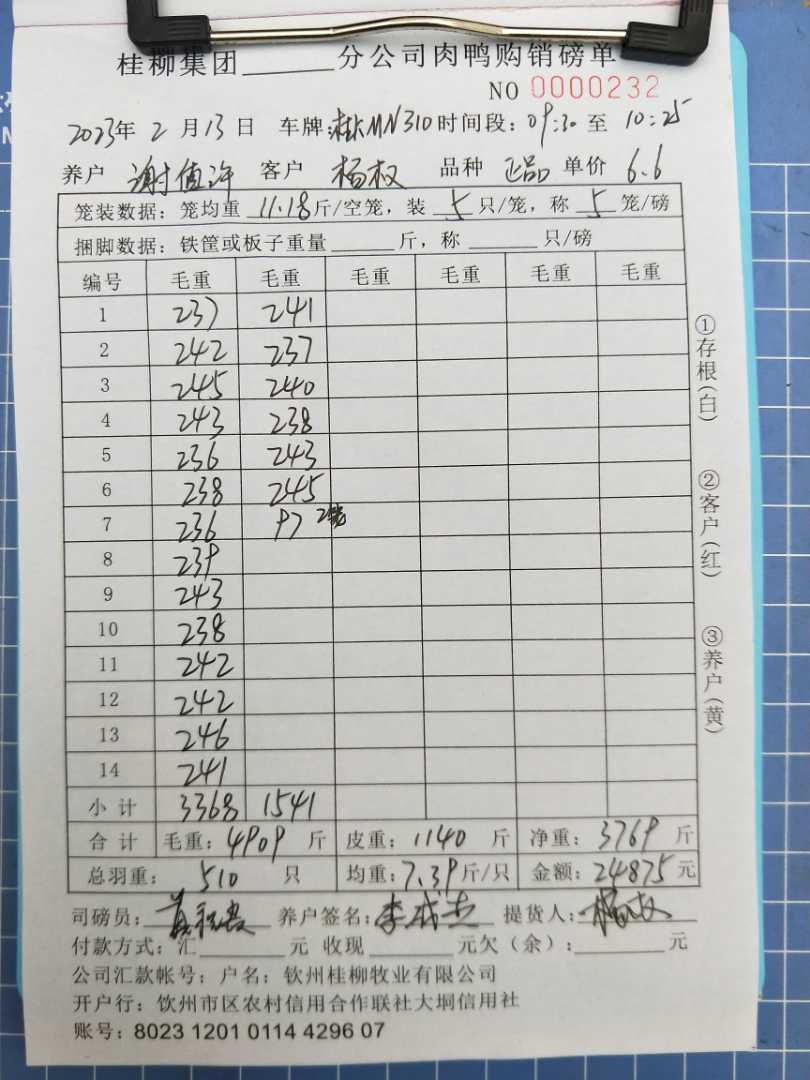 桂柳集团______分公司肉鸭购销磅单
NO 0000232
2023年 2 月 13 日 车牌:桂MN310 时间段:09:30 至 10:25
养户 谢值许 客户 杨权 品种 正品 单价 6.6
笼装数据: 笼均重 11.18 斤/空笼, 装 5 只/笼, 称 5 笼/磅
捆脚数据: 铁筐或板子重量______斤, 称______只/磅
编号 毛重 毛重 毛重 毛重 毛重 毛重
1 237 241
2 242 237
3 245 240
4 243 238
5 236 243
6 238 245
7 236 97 2笼
8 239
9 243
10 238
11 242
12 242
13 246
14 241
小计 3368 1541
合计 毛重: 4909 斤 皮重: 1140 斤 净重: 3769 斤
总羽重: 510 只 均重: 7.39 斤/只 金额: 24875 元
司磅员: 养户签名: 李成志 提货人: 杨权
付款方式: 汇______元 收现______元欠(余):______元
公司汇款帐号: 户名: 钦州桂柳牧业有限公司
开户行: 钦州市区农村信用合作联社大垌信用社
账号: 8023 1201 0114 4296 07
①存根(白)
②客户(红)
③养户(黄)